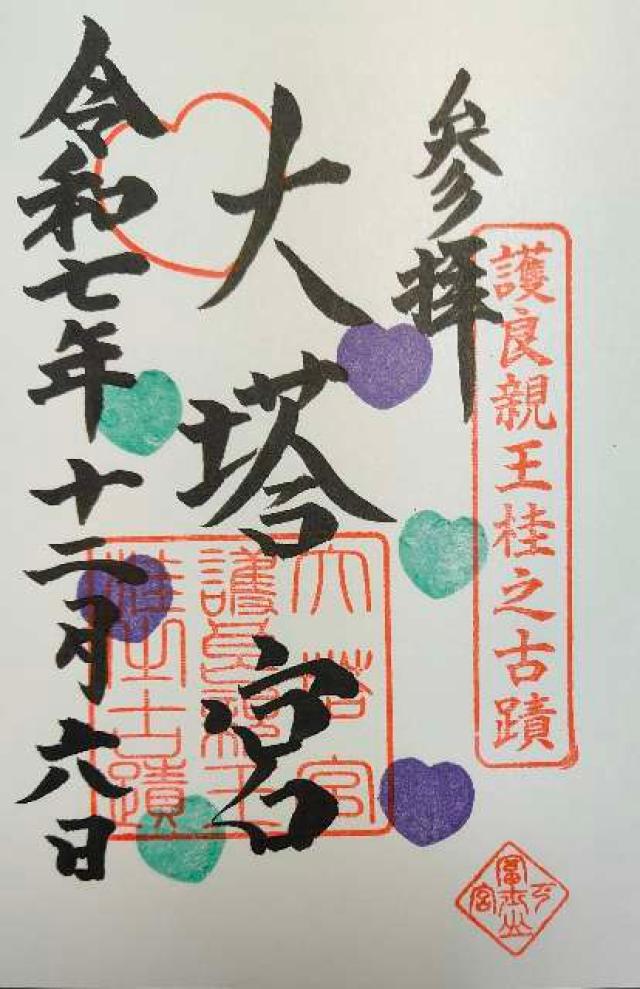 参拝
護良親王桂之古蹟
大塔宮
大塔宮
護良親王
桂之古蹟
令和七年十二月六日